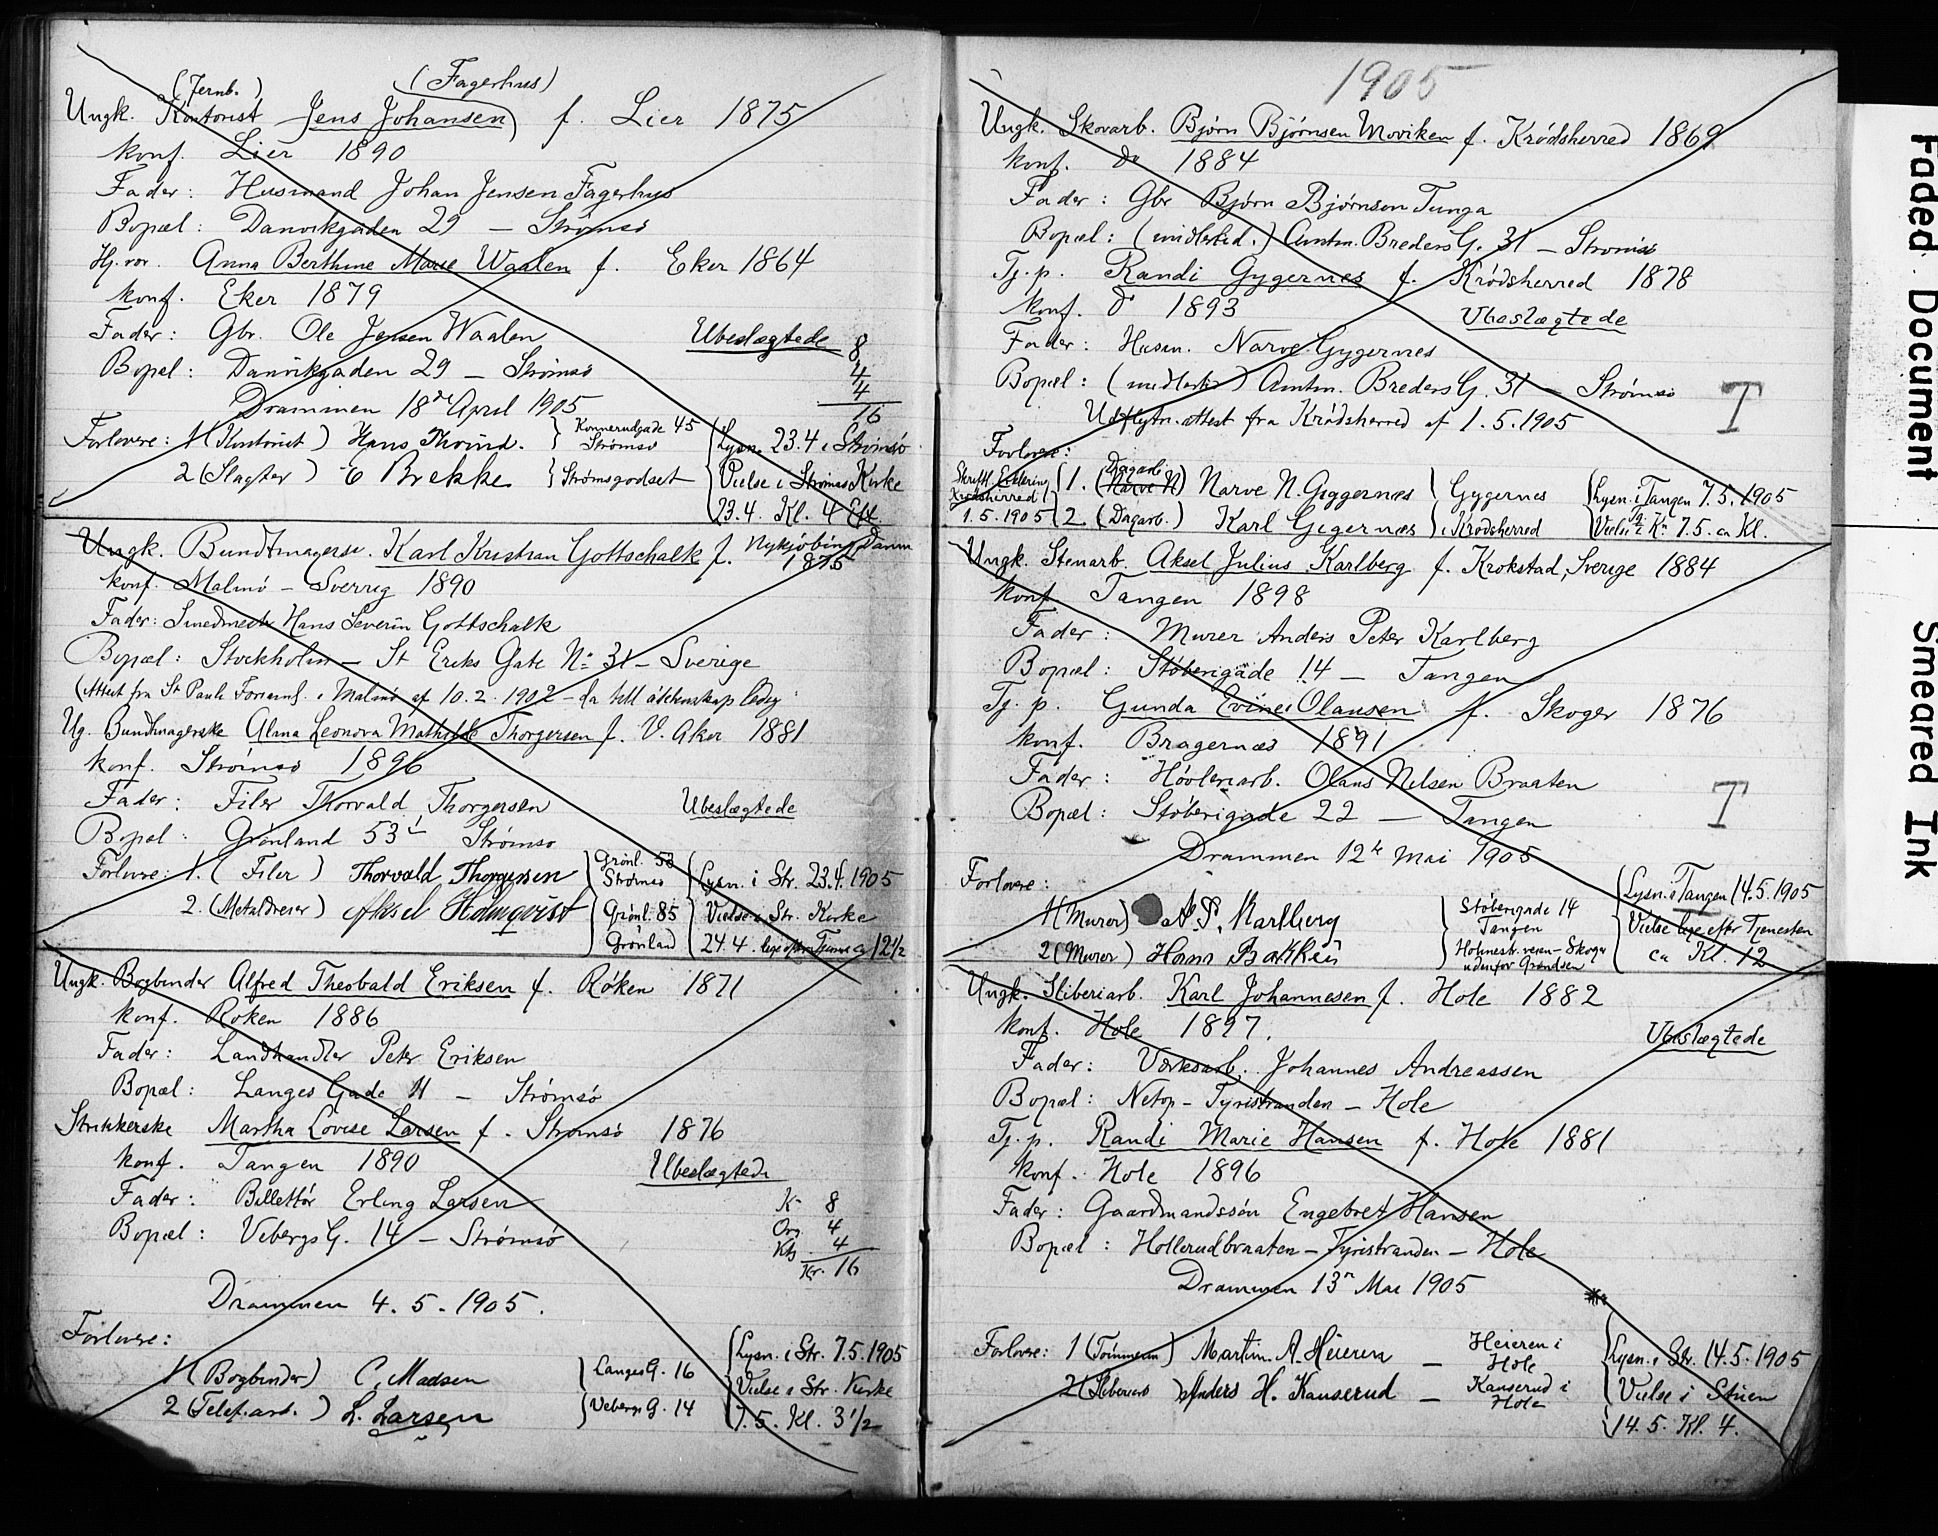 (Jernb.) (Fagerhus)
Ungk. Kontorist Jens Johansen f. Lier 1875
Konf. Lier 1890
Fader: Husmand Johan Jensen Fagerhus
Bopæl: Danvikgaden 29 – Strømsø
Hj. vær. Anna Berthine Marie Waalen f. Eker 1864
Konf. Eker 1879
Fader: Gbr. Ole Jensen Waalen Ubeslægtede 8
Bopæl: Danvikgaden 29 – Strømsø 4
4
Drammen 18de April 1905 16
Forlovere: 1 (Kontorist) Hans Thorud. } Konnerudgade 45 Strømsø { Lysn. 23.4 i Strømsø
2 (Slagter) E Brekke } Strømsgodset { Vielse i Strømsø Kirke
23.4. Kl. 4 Eft.
Ungk. Bundtmagersv. Karl Kristian Gottschalk f. Nykjøbing Danm 1875
Konf. Malmø – Sverrig 1890
Fader: Smedmestr Hans Severin Gottschalk
Bopæl: Stockholm – St Eriks Gate No 31 – Sverige
(Attest fra St Pauli Forsaml. i Malmø af 10.2.1902 – da till äktenskap ledig
Ug. Bundtmagerske Alma Leonora Mathilde Thorgersen f. V. Aker 1881
Konf. Strømsø 1896
Fader: Filer Thorvald Thorgersen Ubeslægtede
Bopæl: Grønland 53 Strømsø
Forlovere: 1. (Filer) Thorvald Thorgersen } Grønl. 53 Strømsø { Lysn. i Str. 23.4.1905
2. (Metaldreier) Aksel Holmqvist } Grønl. 85 Grønland { Vielse i Str. Kirke
24.4. lige efter Tjeneste ca 12 1/2
Ungk. Bogbinder Alfred Theobald Eriksen f. Røken 1871
Konf. Røken 1886
Fader: Landhandler Peter Eriksen
Bopæl: Langes Gade 11 – Strømsø
Strikkerske Martha Lovise Larsen f. Strømsø 1876
Konf. Tangen 1890 Ubeslægtede
Fader: Billettør Erling Larsen K 8
Bopæl: Vebergs G. 14 – Strømsø Org. 4
Kl 4
Kr. 16
Drammen 4.5.1905.
Forlovere:
1 (Bogbinder) C. Madsen } Langes G. 16 { Lysn. i Str. 7.5.1905
2 (Telef.arb.) L. Larsen } Vebergs G. 14 { Vielse i Str. Kirke
7.5. Kl. 3 1/2
1905
Ungk. Skovarb. Bjørn Bjørnsen Moviken f. Krødsherred 1869
Konf. do 1884
Fader: Gbr Bjørn Bjørnsen Tunga
Bopæl: (midlertid.) Amtm. Breders G. 31 – Strømsø
Tj. p. Randi Gygernes f. Krødsherred 1878
Konf. do 1893 Ubeslægtede
Fader: Husm. Narve Gygernes
Bopæl: (midlertid) Amtm. Breders G. 31 – Strømsø T
Udflytn. attest fra Krødsherred af 1.5.1905
Forlovere:
Skriftl. Erklæring Krødsherred 1.5.1905 { 1. (Dagarb. Narve N) Narve N. Gyggernæs } Gygernes { Lysn. i Tangen 7.5.1905
2. (Dagarb.) Karl Gigernæs } i Krødsherred { Vielse i Tg. K. 7.5. ca Kl.
Ungk. Stenarb. Aksel Julius Karlberg f. Krokstad, Sverige 1884
Konf Tangen 1898
Fader: Murer Anders Peter Karlberg
Bopæl: Støberigade 14 – Tangen
Tj. p. Gunda Olausen f. Skoger 1876
Konf. Bragernæs 1891
Fader: Høvleriarb. Olaus Nelsen Braaten
Bopæl: Støberigade 22 – Tangen T
Drammen 12te Mai 1905
Forlovere:
1 (Murer) A. P. Karlberg } Støberigade 14 Tangen { Lysn. i Tangen 14.5.1905
2 (Murer) Hans Bakken } Holmestr.veien – Skoger udenfor Grændsen { Vielse lige efter Tjenesten
ca Kl. 12
Ungk. Sliberiarb. Karl Johannesen f. Hole 1882
Konf. Hole 1897. Ubeslægtede
Fader: Værksarb. Johannes Andreassen
Bopæl: Netop – Tyristranden – Hole
Tj. p. Randi Marie Hansen f. Hole 1881
Konf. Hole 1896
Fader: Gaardmandssøn Engebret Hansen
Bopæl: Hollerudbraaten – Tyristranden – Hole
Drammen 13de Mai 1905
Forlovere: 1 (Tømmerm) Martin A. Heieren – Heieren i Hole { Lysn. i Str. 14.5.1905
2 (Sliberiarb) Anders H. Kanserud – Kanserud i Hole { Vielse i Stuen
14.5. Kl. 4.
Faded Document
Smeared Ink